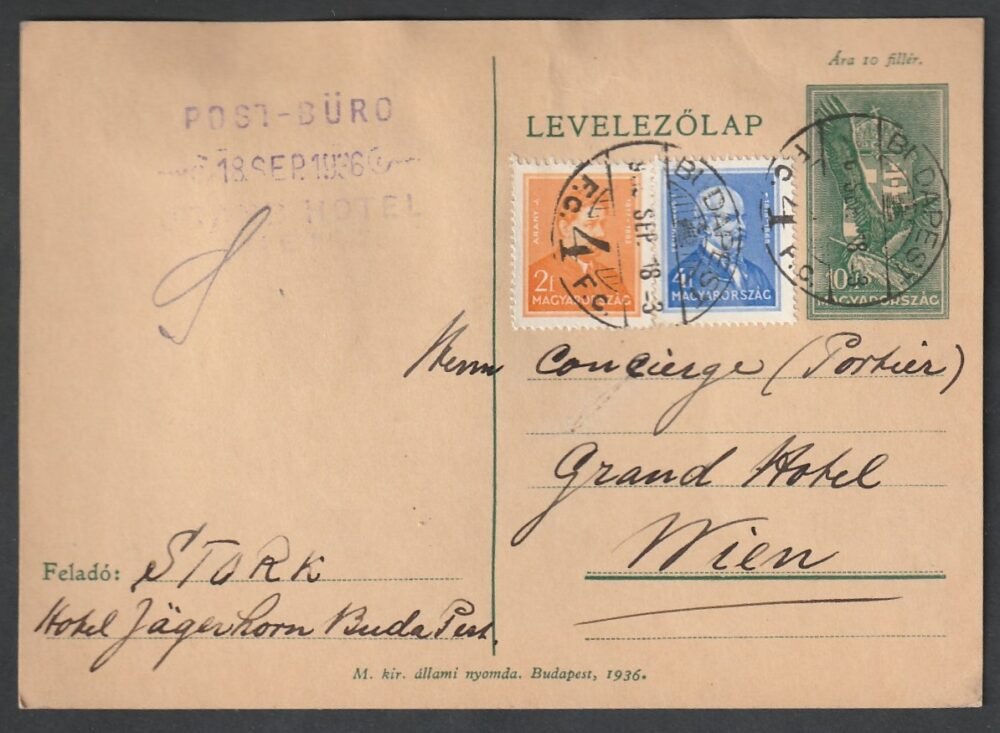 Ára 10 fillér.
POST-BÜRO
18.SEP.1936
HOTEL
LEVELEZŐLAP
ARANY J.
2f
MAGYARORSZÁG
4f
MAGYARORSZÁG
10f
MAGYARORSZÁG
BUDAPEST
4
F.C. F.C.
SEP. 18 -3
BUDAPEST
4
F.C. F.C.
18 -3
Herrn Concierge (Portier)
Grand Hotel
Wien
Feladó: STORK
Hotel Jägerhorn BudaPest.
M. kir. állami nyomda. Budapest, 1936.